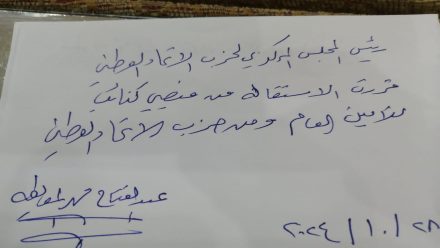 رئيس المجلس المركزي لحزب الاتحاد الوطني
قررت الاستقالة من منصبي كنائب
للأمين العام ومن حزب الاتحاد الوطني
عبدالفتاح محمد
٢٠٢٤/١٠/٢٨